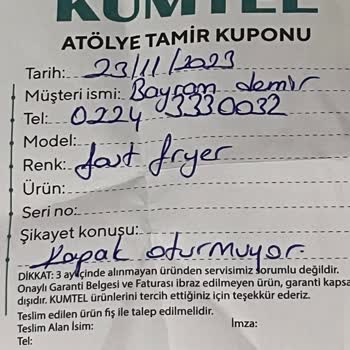 KUMTEL
ATÖLYE TAMİR KUPONU
Tarih: 23/11/2023
Müşteri ismi: Bayram demir
Tel: 0224 3330032
Model:
Renk: fast fryer
Ürün:
Seri no:
Şikayet konusu:
Kapak oturmuyor.
DİKKAT: 3 ay içinde alınmayan üründen servisimiz sorumlu değildir.
Onaylı Garanti Belgesi ve Faturası ibraz edilmeyen ürün, garanti kapsa
dışıdır. KUMTEL ürünlerini tercih ettiğiniz için teşekkür ederiz.
Teslim edilen ürün fiş ile talep edilmelidir.
Teslim Alan İsim: İmza:
Tel: